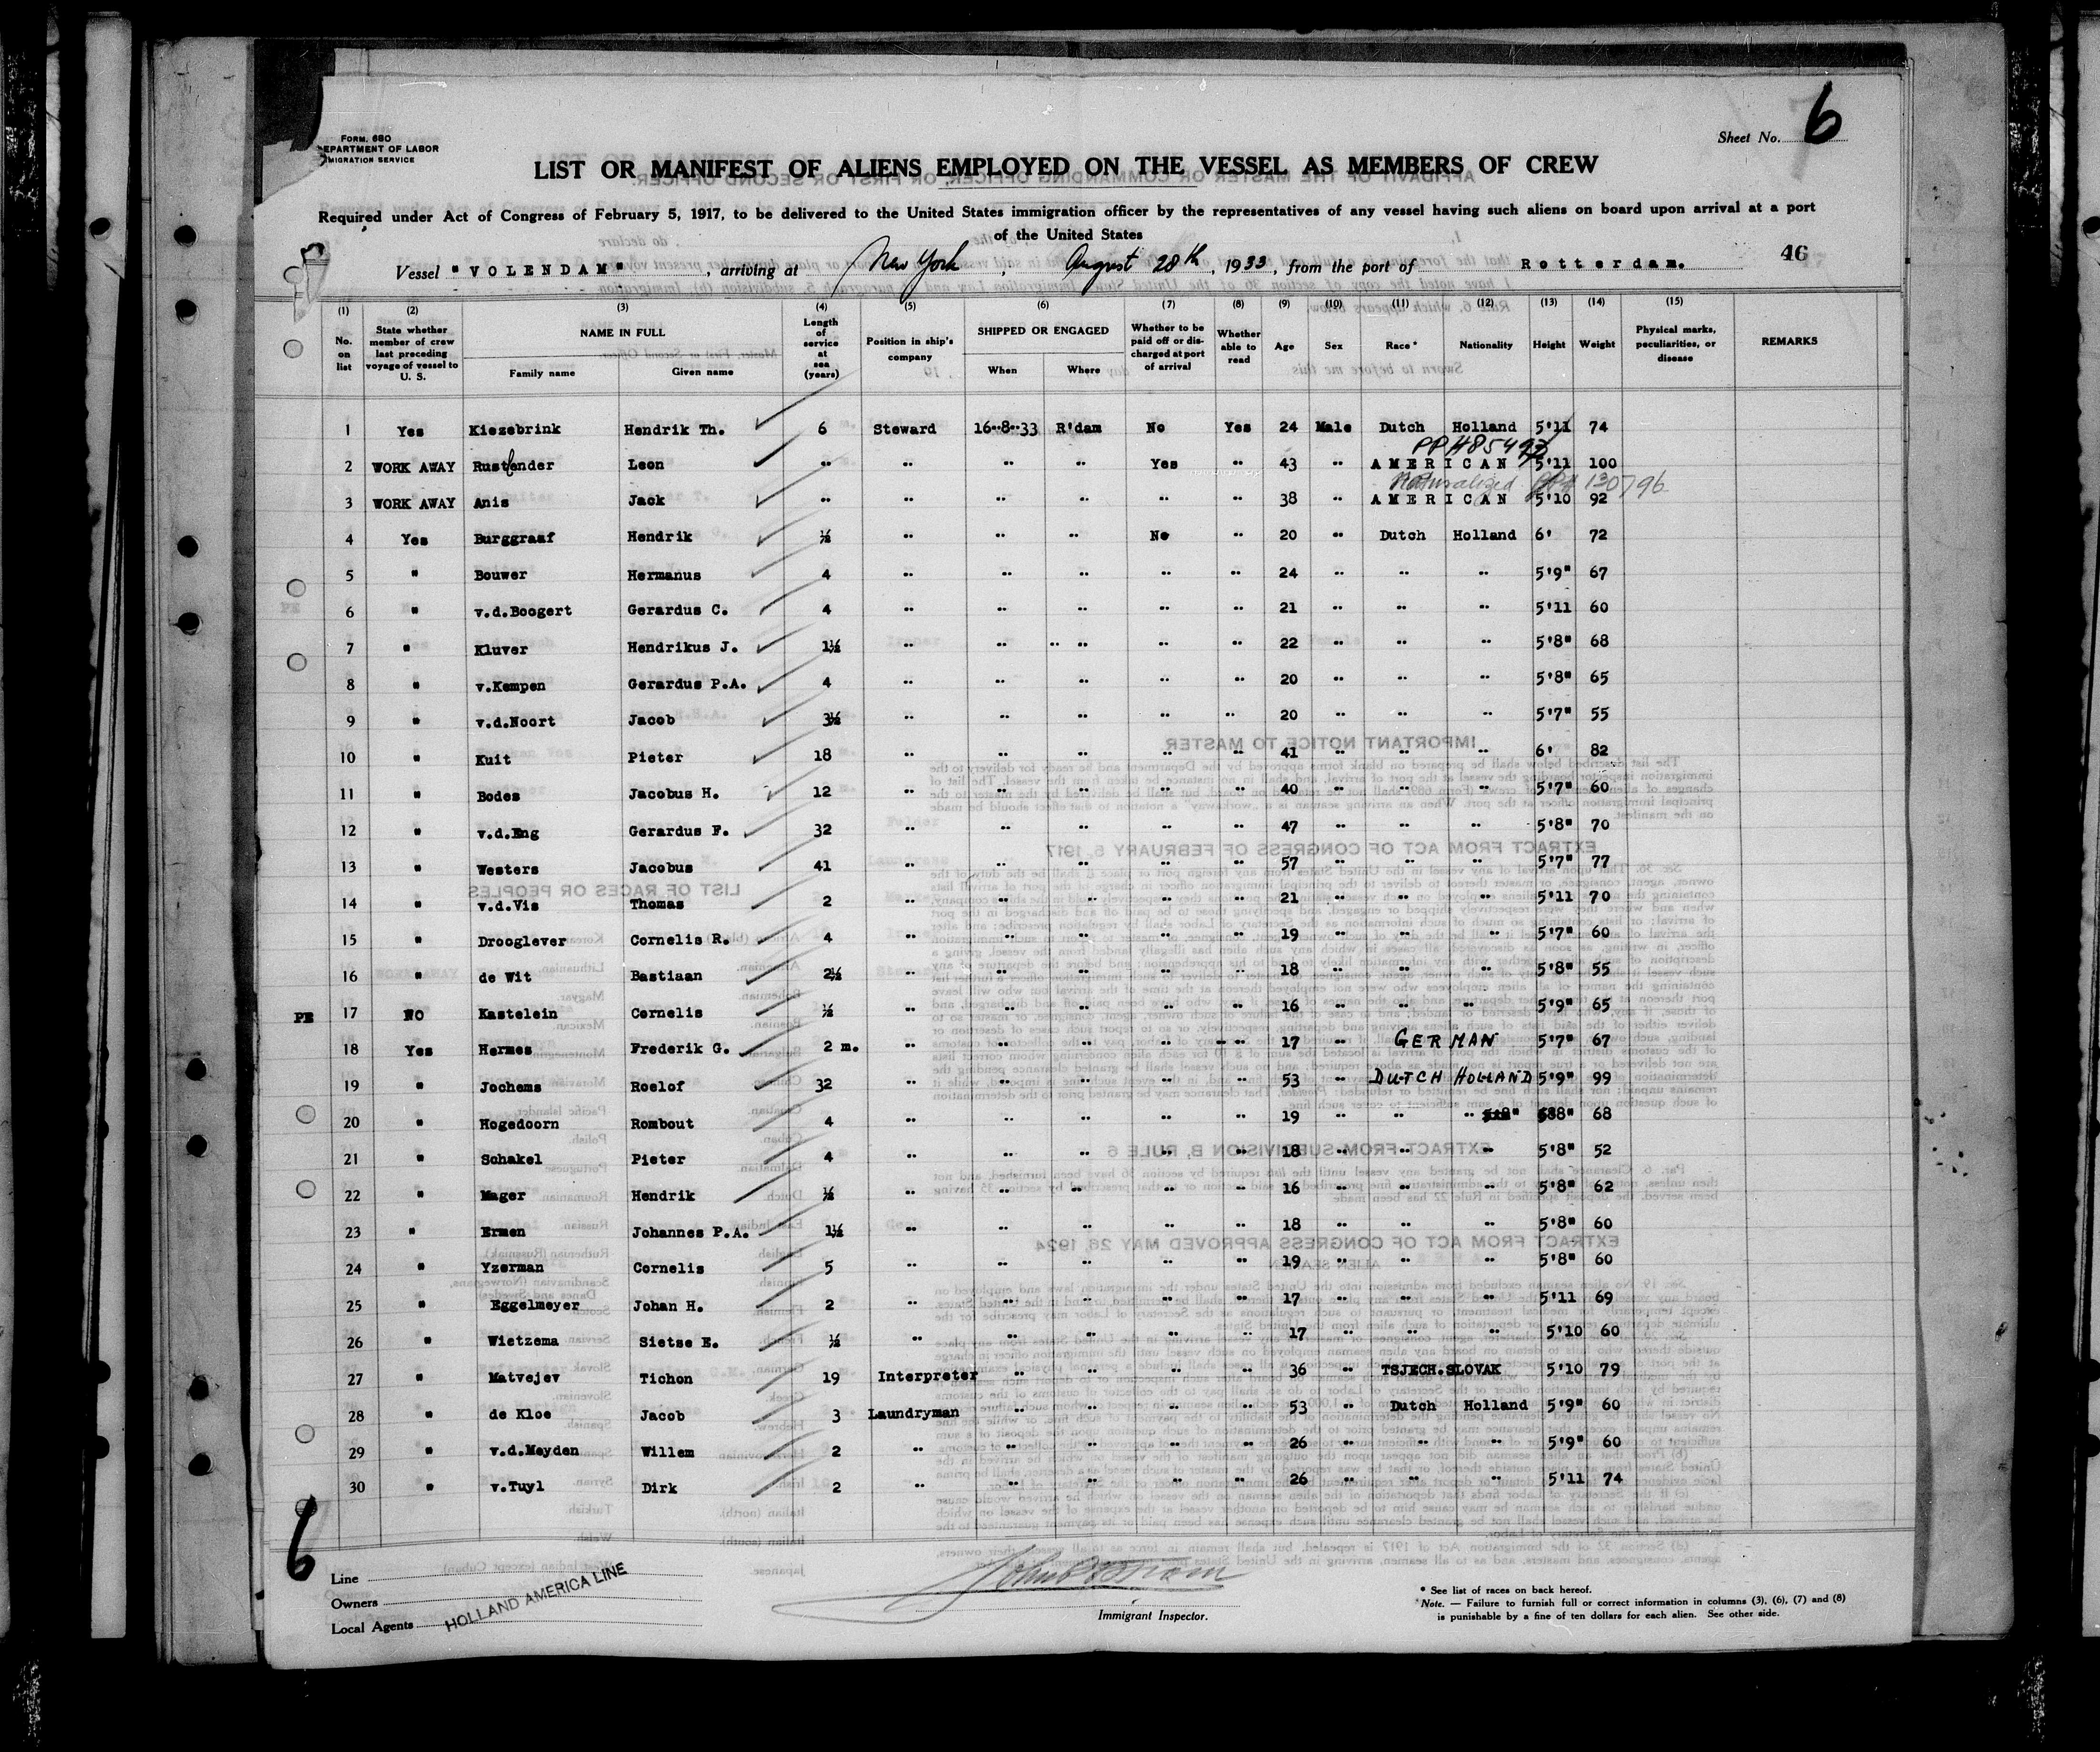 FORM. 680
DEPARTMENT OF LABOR
IMMIGRATION SERVICE
Sheet No. 6
LIST OR MANIFEST OF ALIENS EMPLOYED ON THE VESSEL AS MEMBERS OF CREW
Required under Act of Congress of February 5, 1917, to be delivered to the United States immigration officer by the representatives of any vessel having such aliens on board upon arrival at a port
of the United States
46
Vessel "VOLENDAM", arriving at New York, August 28th, 1933, from the port of Rotterdam.
(1) (2) (3) (4) (5) (6) (7) (8) (9) (10) (11) (12) (13) (14) (15)
No. on list State whether member of crew last preceding voyage of vessel to U. S. NAME IN FULL Family name Given name Length of service at sea (years) Position in ship's company SHIPPED OR ENGAGED When Where Whether to be paid off or discharged at port of arrival Whether able to read Age Sex Race* Nationality Height Weight Physical marks, peculiarities, or disease REMARKS
1 Yes Kiezebrink Hendrik Th. 6 Steward 16-8-33 R'dam No Yes 24 Male Dutch Holland 5'11 74
2 WORK AWAY Leon " " " " Yes " 43 " AMERICAN 5'11 100
Naturalized 130796
3 WORK AWAY Anis Jack " " " " " " 38 " AMERICAN 5'10 92
4 Yes Burggraaf Hendrik ½ " " " No " 20 " Dutch Holland 6' 72
5 " Bouwer Hermanus 4 " " " " " 24 " " " 5'9" 67
6 " v.d.Boogert Gerardus C. 4 " " " " " 21 " " " 5'11 60
7 " Kluver Hendrikus J. 1½ " " " " " 22 " " " 5'8" 68
8 " v.Kempen Gerardus P.A. 4 " " " " " 20 " " " 5'8" 65
9 " v.d.Noort Jacob 3½ " " " " " 20 " " " 5'7" 55
10 " Kuit Pieter 18 " " " " " 41 " " " 6' 82
11 " Bodes Jacobus H. 12 " " " " " 40 " " " 5'7" 60
12 " v.d.Eng Gerardus F. 32 " " " " " 47 " " " 5'8" 70
13 " Westers Jacobus 41 " " " " " 57 " " " 5'7" 77
14 " v.d.Vis Thomas 2 " " " " " 21 " " " 5'11 70
15 " Drooglever Cornelis R. 4 " " " " " 19 " " " 5'7" 60
16 " de Wit Bastiaan 2½ " " " " " 18 " " " 5'8" 55
PE 17 NO Kastelein Cornelis ½ " " " " " 16 " " " 5'9" 65
18 Yes Hermes Frederik G. 2 m. " " " " " 17 " GERMAN 5'7" 67
19 " Jochems Roelof 32 " " " " " 53 " DUTCH HOLLAND 5'9" 99
20 " Hogedoorn Rombout 4 " " " " " 19 " " " 5'8" 68
21 " Schakel Pieter 4 " " " " " 18 " " " 5'8" 52
22 " Mager Hendrik ½ " " " " " 16 " " " 5'8" 62
23 " Ermen Johannes P.A. 1½ " " " " " 18 " " " 5'8" 60
24 " Yzerman Cornelis 5 " " " " " 19 " " " 5'8" 60
25 " Eggelmeyer Johan H. 2 " " " " " 17 " " " 5'11 69
26 " Wietzema Sietse E. ½ " " " " " 17 " " " 5'10 60
27 " Matvejev Tichon 19 Interpreter " " " " 36 " TSJECH.SLOVAK 5'10 79
28 " de Kloe Jacob 3 Laundryman " " " " 53 " Dutch Holland 5'9" 60
29 " v.d.Meyden Willem 2 " " " " " 26 " " " 5'9" 60
30 " v.Tuyl Dirk 2 " " " " " 26 " " " 5'11 74
6
Line
Owners
Local Agents HOLLAND AMERICA LINE
Immigrant Inspector.
* See list of races on back hereof.
Note. — Failure to furnish full or correct information in columns (3), (6), (7) and (8)
is punishable by a fine of ten dollars for each alien. See other side.